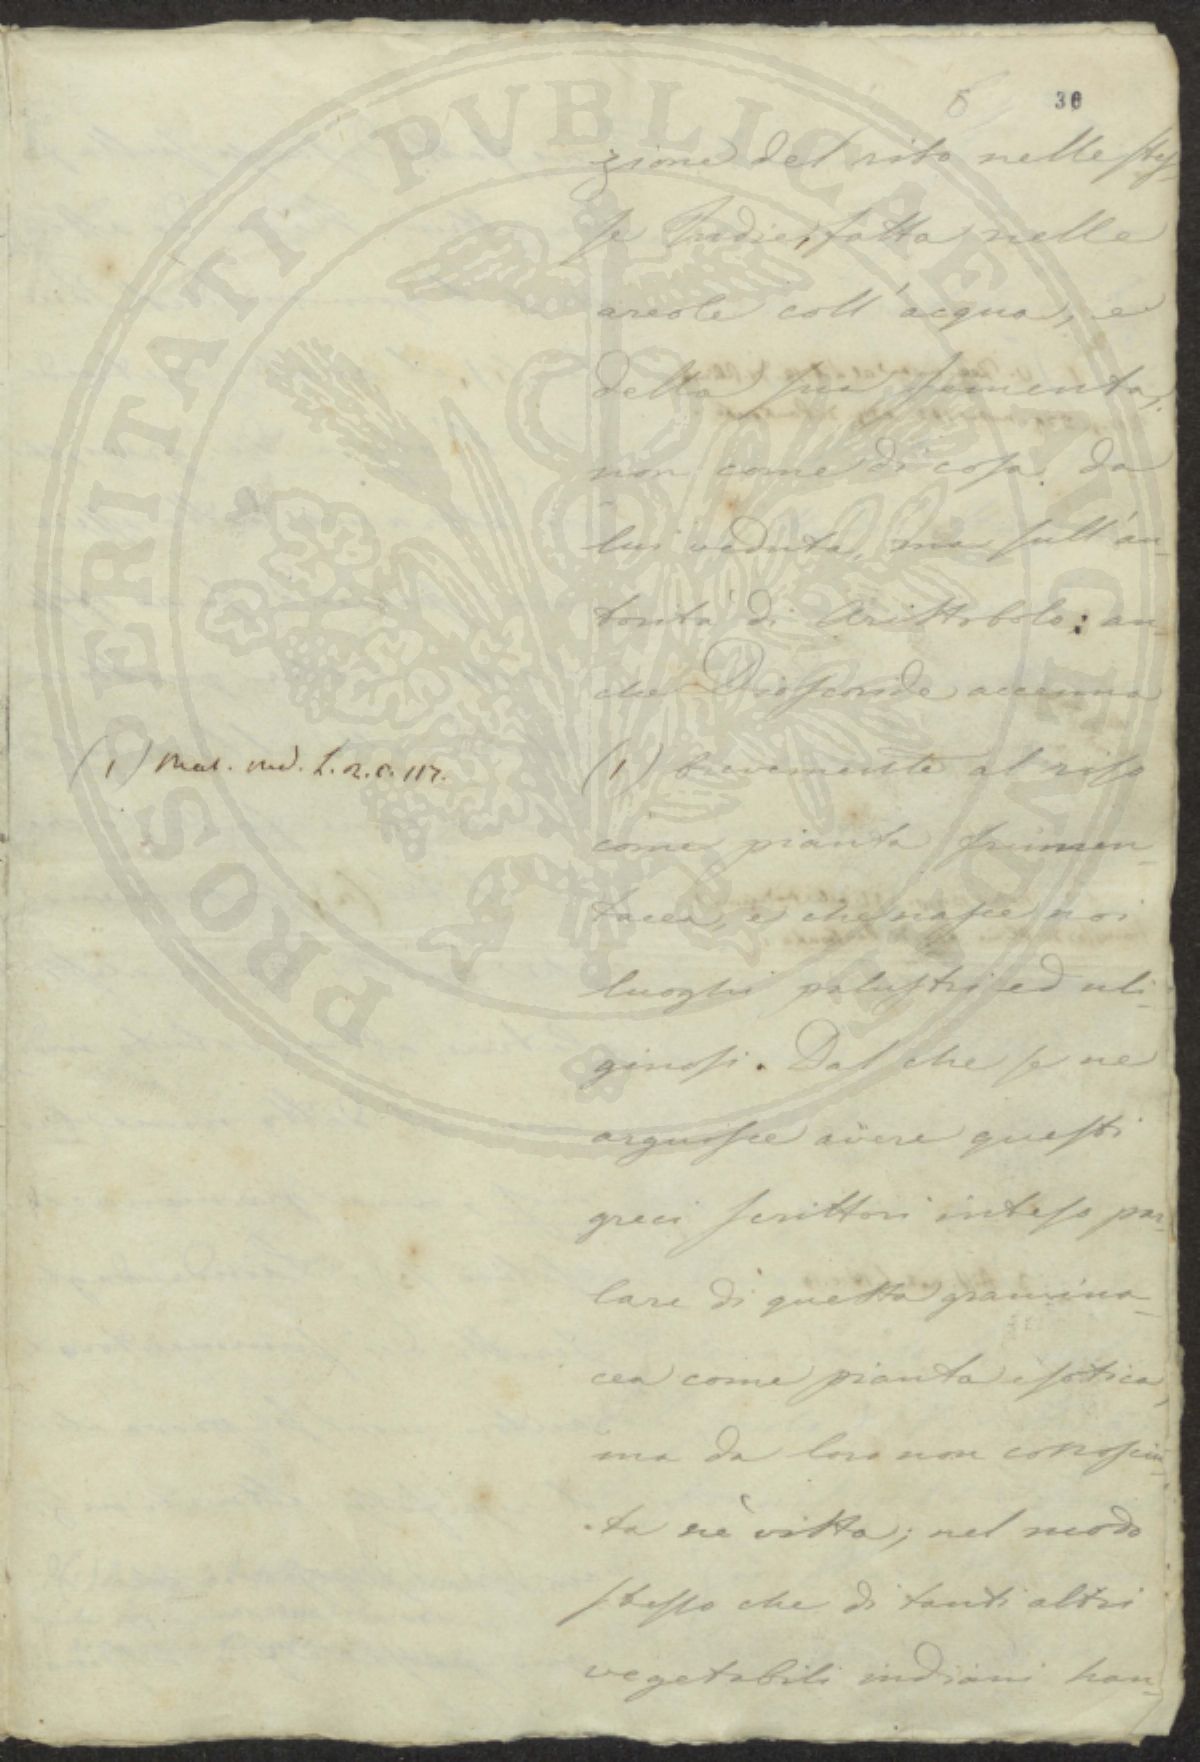 5 30
zione del riso nelle stes-
se Indie, fatta nelle
areole coll'acqua, e
della sua sementa,
non come di cosa da
lui veduta, ma sull'au-
torità di Aristobolo: an-
che Dioscoride accenna
(1) Mat. med. L. 2. c. 117.
(1) brevemente al riso
come pianta frumen-
tacea, e che nasce noi
luoghi palustri ed uli-
ginosi. Dal che se ne
arguisce avere questi
greci scrittori inteso par-
lare di questa gramina-
cea come pianta esotica,
ma da loro non conosciu-
ta nè vista; nel modo
stesso che di tanti altri
vegetabili indiani han-
PROSPERITATI PVBLICAE AVGENDAE